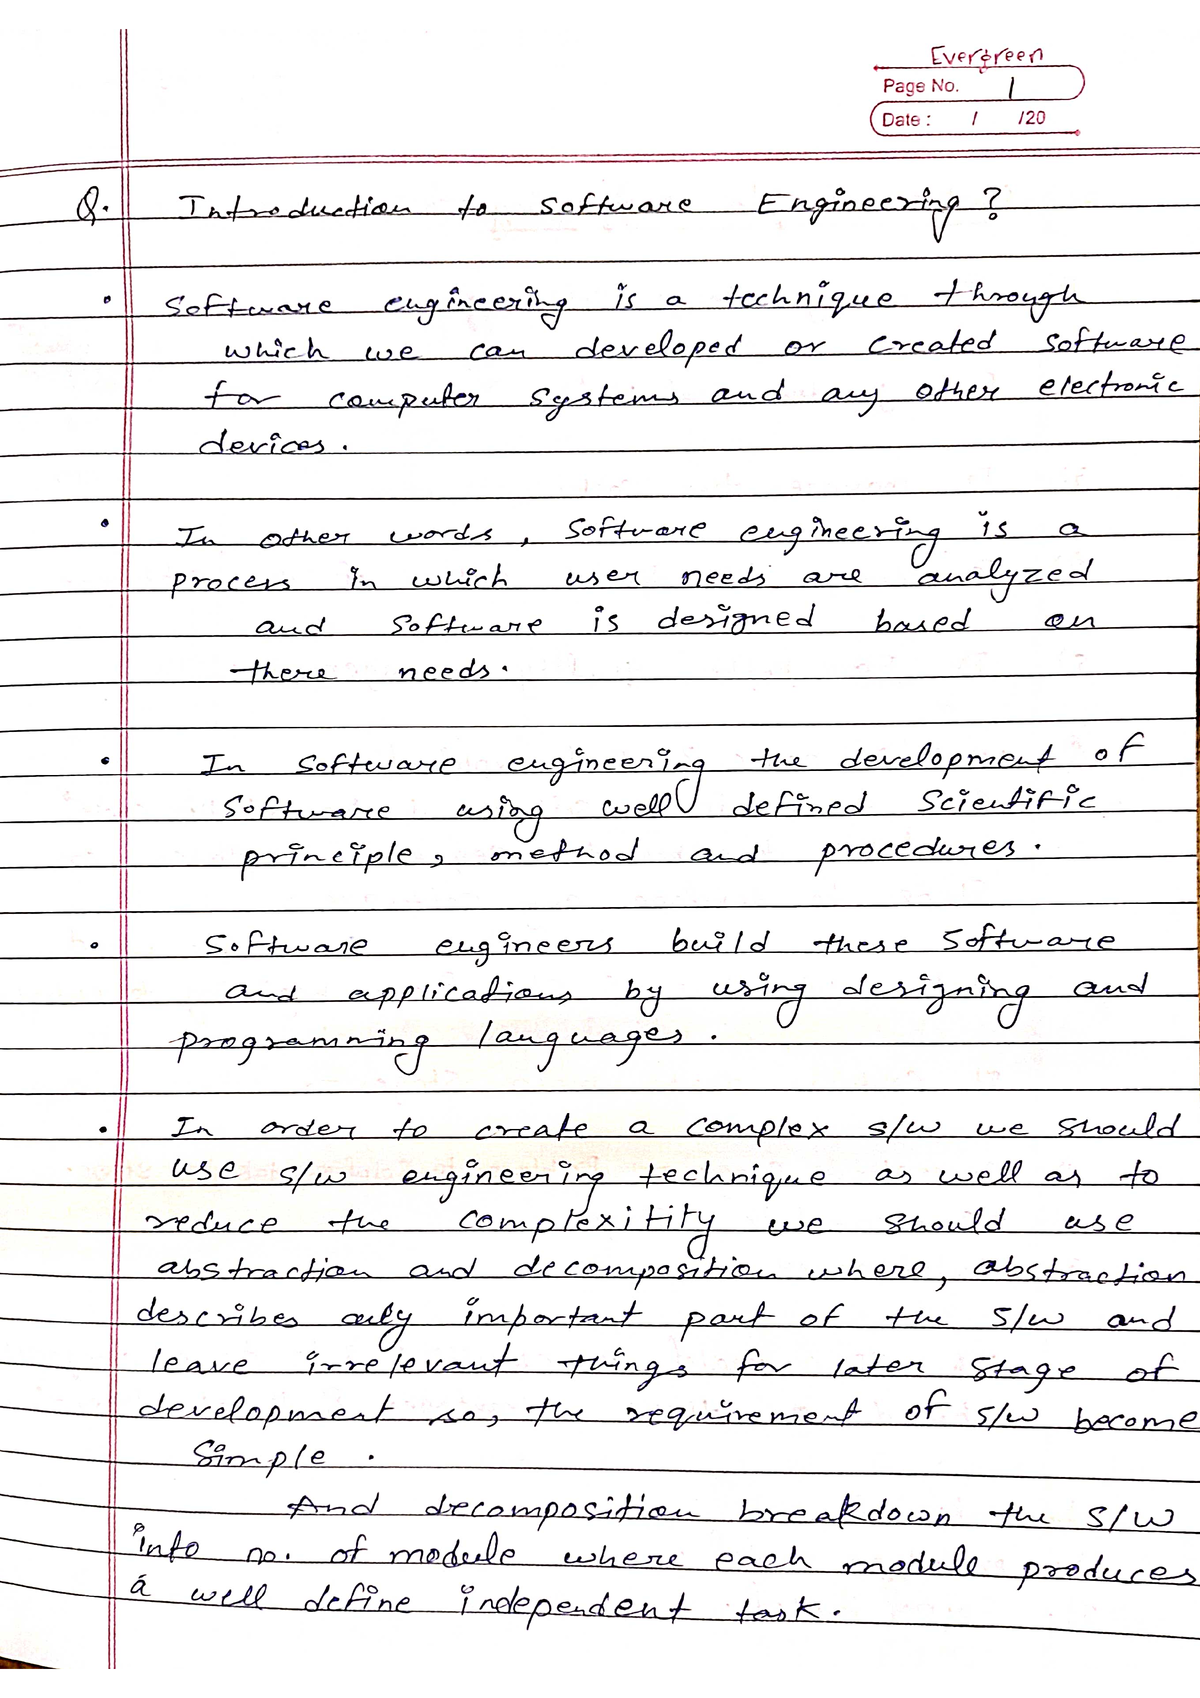 Evergreen
Page No. 1
Date : / /20
Q. Introduction to Software Engineering ?
• Software engineering is a technique through
which we can developed or created software
for computer systems and any other electronic
devices.
• In other words, Software engineering is a
process in which user needs are analyzed
and software is designed based on
there needs.
• In Software engineering the development of
Software using well defined Scientific
principle, method and procedures.
• Software engineers build these Software
and applications by using designing and
programming languages.
• In order to create a complex s/w we should
use s/w engineering technique as well as to
reduce the complexitity we should use
abstraction and decomposition where, abstraction
describes only important part of the s/w and
leave irrelevant things for later stage of
development so, the requirement of s/w become
Simple.
And decomposition breakdown the s/w
into no. of module where each module produces
a well define independent task.